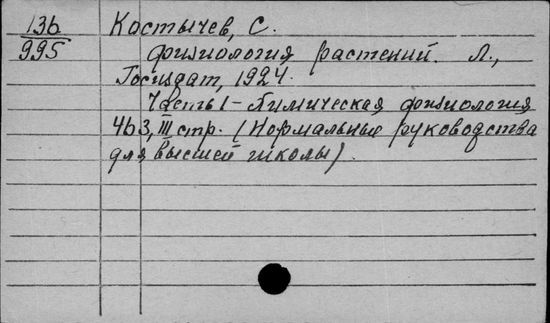 136
995
Костычев, С.
Физиология растений. Л.,
Госиздат, 1924.
Часть 1 - Химическая физиология
463, III стр. (Нормальные руководства
для высшей школы).